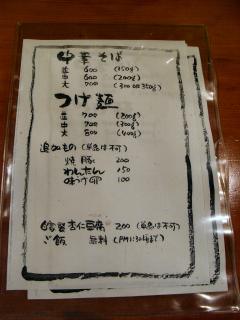 中華そば
並 600 (150g)
中 600 (200g)
大 700 (300 or 350g)
つけ麺
並 700 (200g)
中 700 (300g)
大 800 (400g)
追加もの (単品は不可)
焼豚 200
わんたん 150
味つけ卵 100
自家製杏仁豆腐 200 (単品は不可)
ご飯 無料 (PM1:30まで)